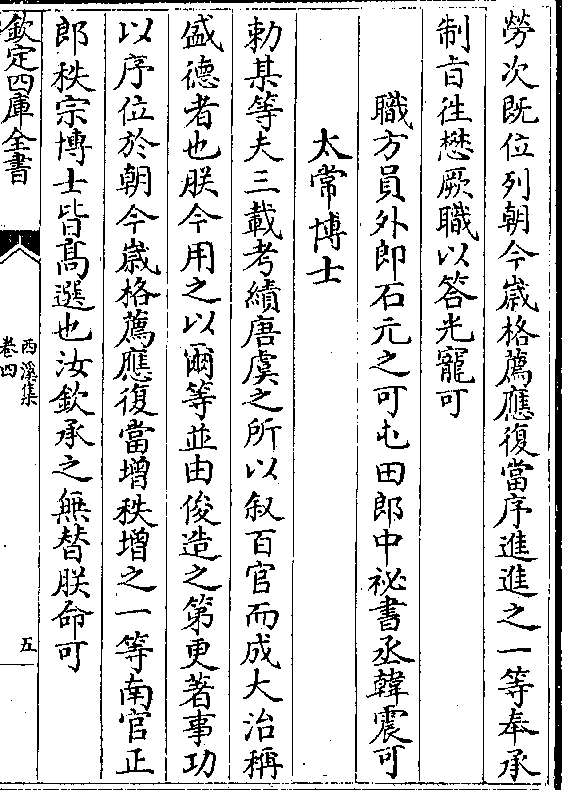 勞次既位列朝今嵗格薦應復當序進進之一等奉承
制㫖徃懋厥職以答光寵可
職方員外郎石元之可屯田郎中祕書丞韓震可
太常博士
勅某等夫三載考績唐虞之所以叙百官而成大治稱
盛德者也朕今用之以爾等並由俊造之第更著事功
以序位於朝今嵗格薦應復當增秩增之一等南官正
郎秩宗博士皆髙選也汝欽承之無替朕命可
欽定四庫全書
西溪集
卷四
五